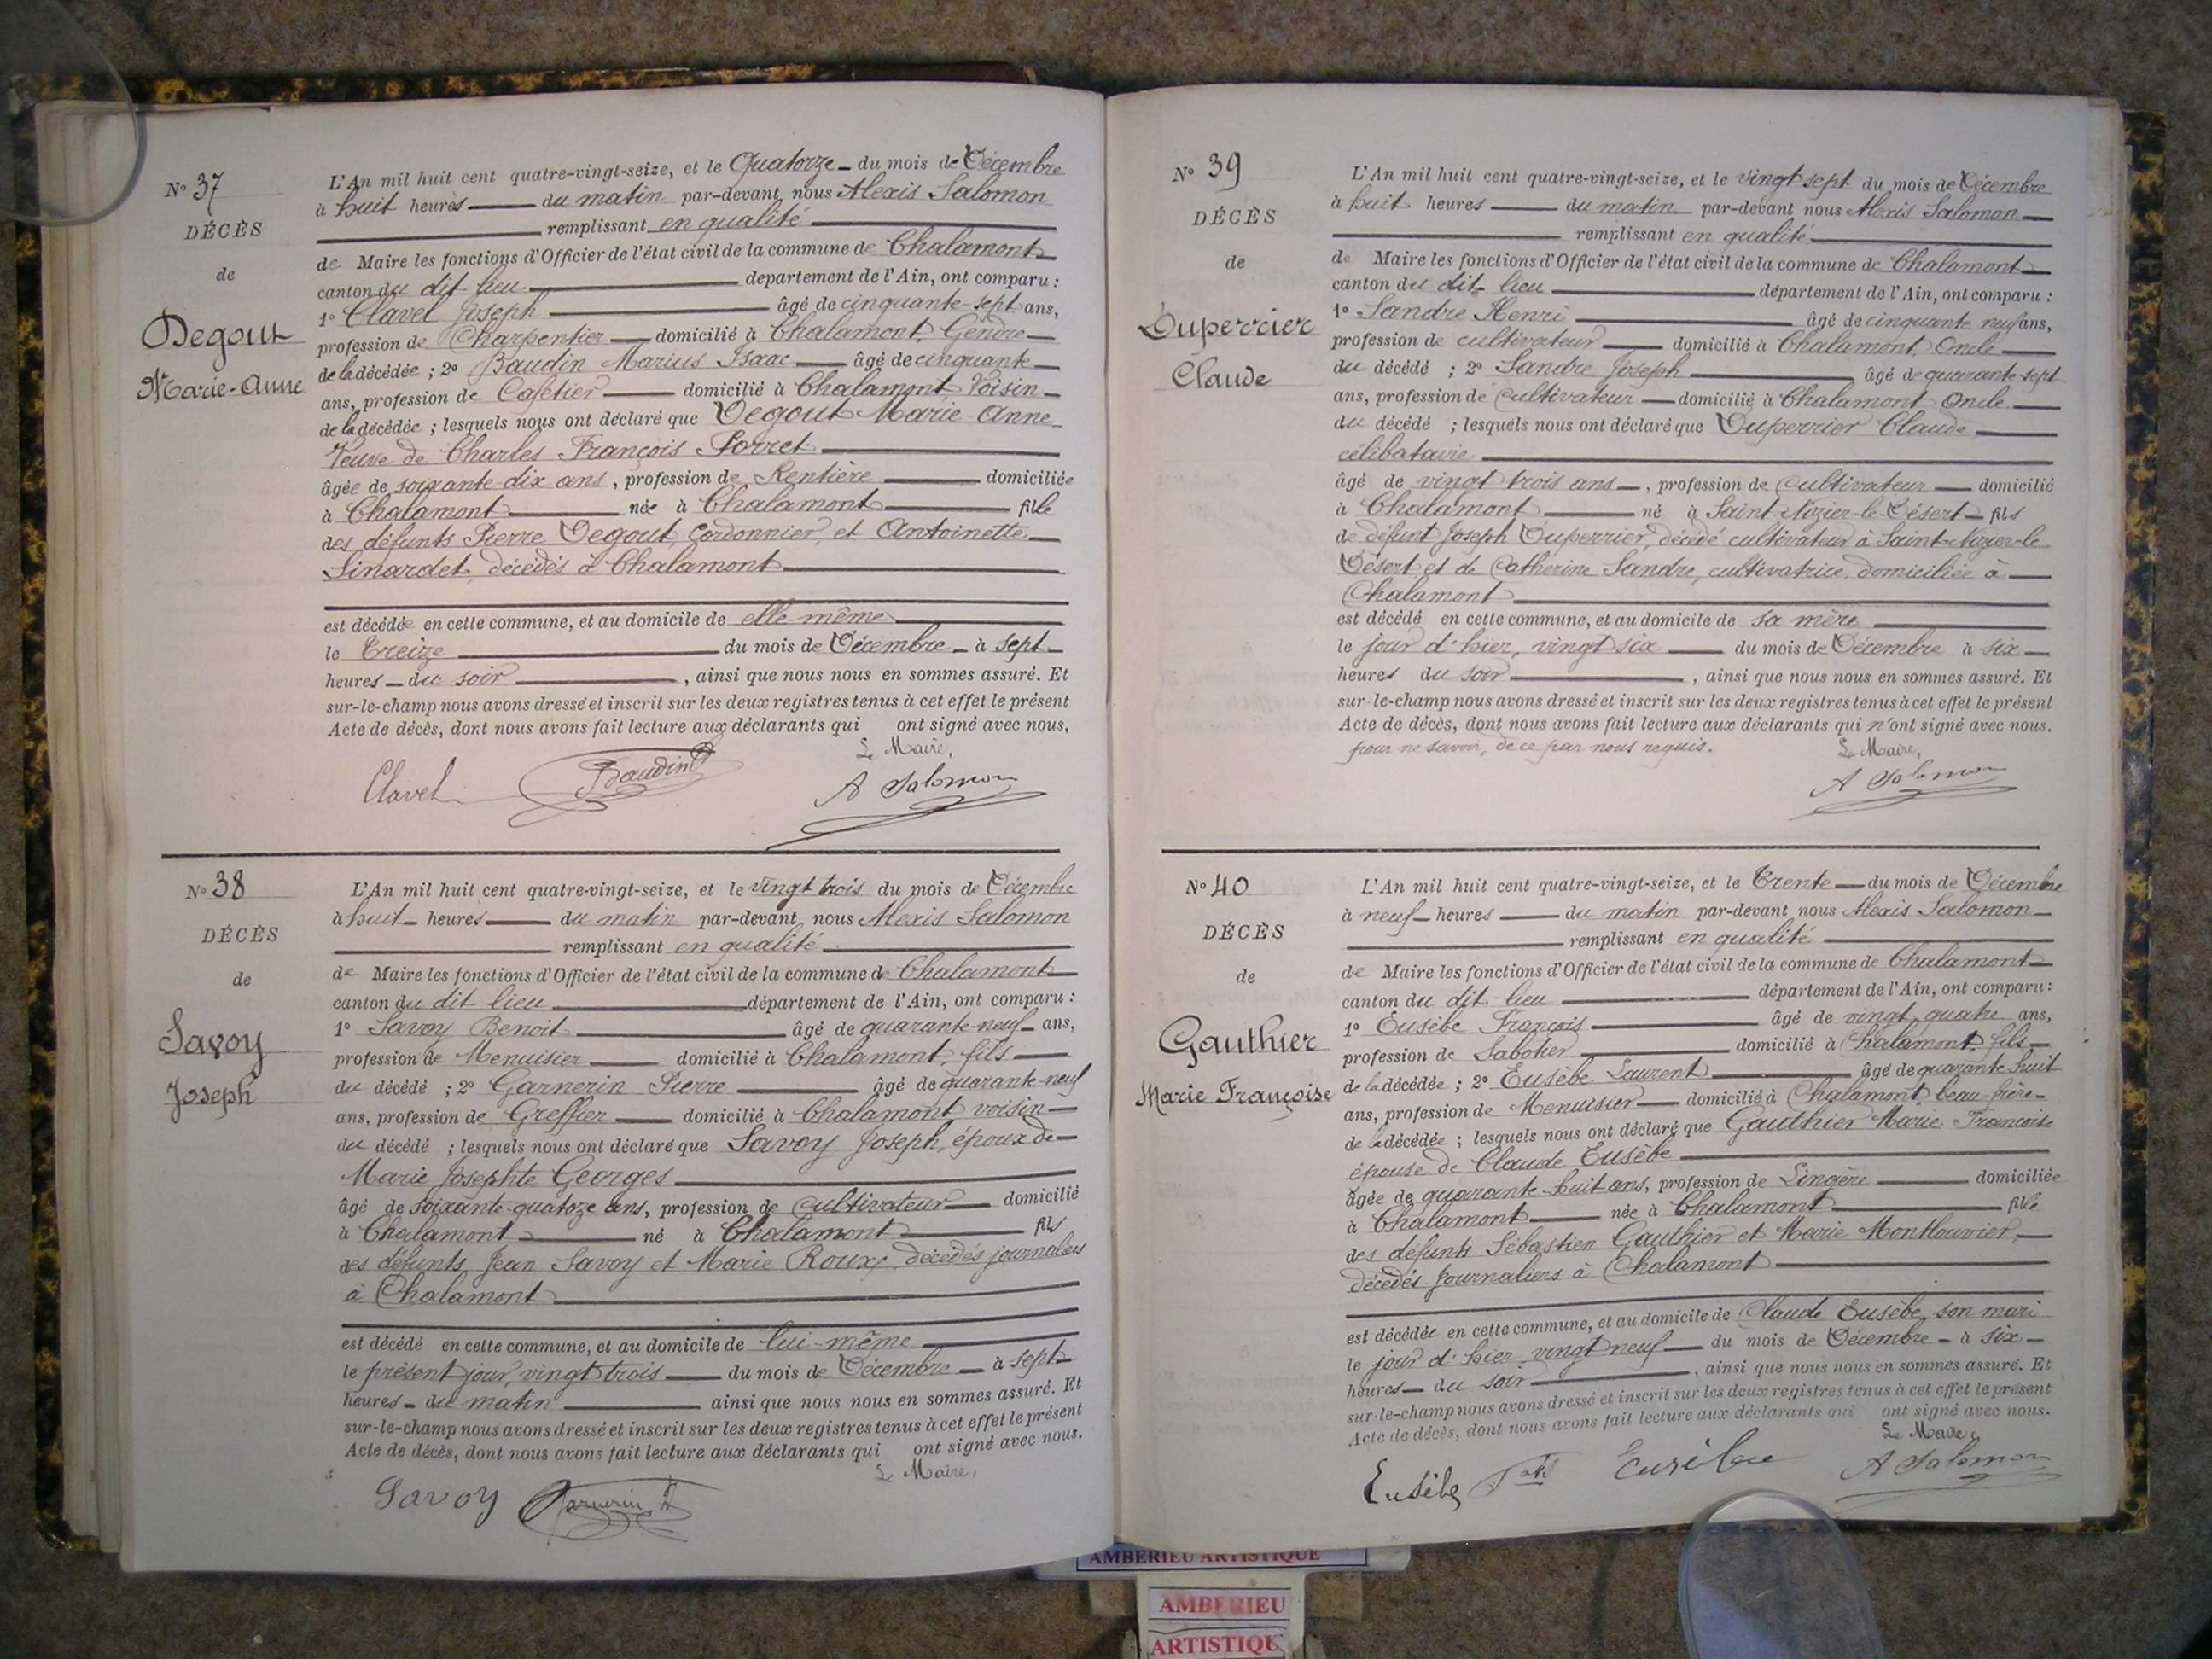 N° 37
DÉCÈS
de
Degout
Marie-Anne
L'An mil huit cent quatre-vingt-seize, et le Quatorze du mois de Décembre
à huit heures du matin par-devant nous Alexis Salomon
remplissant en qualité
de Maire les fonctions d'Officier de l'état civil de la commune de Chalamont
canton du dit lieu departement de l'Ain, ont comparu :
1° Clavel Joseph âgé de cinquante-sept ans,
profession de Charpentier domicilié à Chalamont, Gendre
de la décédée ; 2° Baudin Marius Isaac âgé de cinquante
ans, profession de Cafetier domicilié à Chalamont, Voisin
de la décédée ; lesquels nous ont déclaré que Degout Marie-Anne
Veuve de Charles François Porret
âgée de soixante-dix ans, profession de Rentière domiciliée
à Chalamont née à Chalamont fille
des défunts Pierre Degout, Cordonnier, et Antoinette
Sinardet, décédés à Chalamont
est décédée en cette commune, et au domicile de elle-même
le Treize du mois de Décembre à sept
heures du soir, ainsi que nous nous en sommes assuré. Et
sur-le-champ nous avons dressé et inscrit sur les deux registres tenus à cet effet le présent
Acte de décès, dont nous avons fait lecture aux déclarants qui ont signé avec nous,
Le Maire,
Clavel Baudin A Salomon
N° 38
DÉCÈS
de
Savoy
Joseph
L'An mil huit cent quatre-vingt-seize, et le vingt trois du mois de Décembre
à huit heures du matin par-devant nous Alexis Salomon
remplissant en qualité
de Maire les fonctions d'Officier de l'état civil de la commune de Chalamont
canton du dit lieu département de l'Ain, ont comparu :
1° Savoy Benoit âgé de quarante-neuf ans,
profession de Menuisier domicilié à Chalamont, fils
du décédé ; 2° Garnerin Pierre âgé de quarante-neuf
ans, profession de Greffier domicilié à Chalamont, voisin
du décédé ; lesquels nous ont déclaré que Savoy Joseph, époux de
Marie Josephte Georges
âgé de soixante-quatoze ans, profession de cultivateur domicilié
à Chalamont né à Chalamont fils
des défunts Jean Savoy et Marie Roux, décédés journaliers
à Chalamont
est décédé en cette commune, et au domicile de lui-même
le présent jour, vingt trois du mois de Décembre à sept
heures du matin ainsi que nous nous en sommes assuré. Et
sur-le-champ nous avons dressé et inscrit sur les deux registres tenus à cet effet le présent
Acte de décès, dont nous avons fait lecture aux déclarants qui ont signé avec nous.
Le Maire,
Savoy Garnerin
N° 39
DÉCÈS
de
Duperrier
Claude
L'An mil huit cent quatre-vingt-seize, et le vingt sept du mois de Décembre
à huit heures du matin par-devant nous Alexis Salomon
remplissant en qualité
de Maire les fonctions d'Officier de l'état civil de la commune de Chalamont
canton du dit lieu département de l'Ain, ont comparu :
1° Sandre Henri âgé de cinquante neuf ans,
profession de cultivateur domicilié à Chalamont, Oncle
du décédé ; 2° Sandre Joseph âgé de quarante sept
ans, profession de Cultivateur domicilié à Chalamont Oncle
du décédé ; lesquels nous ont déclaré que Duperrier Claude
célibataire
âgé de vingt trois ans, profession de Cultivateur domicilié
à Chalamont né à Saint-Nizier-le-Désert fils
de défunt Joseph Duperrier, décédé cultivateur à Saint-Nizier-le
Désert et de Catherine Sandre, cultivatrice, domiciliée à
Chalamont
est décédé en cette commune, et au domicile de sa mère
le jour d'hier, vingt six du mois de Décembre à six
heures du soir, ainsi que nous nous en sommes assuré. Et
sur-le-champ nous avons dressé et inscrit sur les deux registres tenus à cet effet le présent
Acte de décès, dont nous avons fait lecture aux déclarants qui n'ont signé avec nous.
pour ne savoir, de ce par nous requis. Le Maire,
A Salomon
N° 40
DÉCÈS
de
Gauthier
Marie Françoise
L'An mil huit cent quatre-vingt-seize, et le Trente du mois de Décembre
à neuf heures du matin par-devant nous Alexis Salomon
remplissant en qualité
de Maire les fonctions d'Officier de l'état civil de la commune de Chalamont
canton du dit lieu département de l'Ain, ont comparu :
1° Eusèbe François âgé de vingt quatre ans,
profession de Sabotier domicilié à Chalamont, fils
de la décédée ; 2° Eusèbe Laurent âgé de quarante huit
ans, profession de Menuisier domicilié à Chalamont, beau-frère
de la décédée ; lesquels nous ont déclaré que Gauthier Marie Francoise
épouse de Claude Eusèbe
âgée de quarante-huit ans, profession de Lingère domiciliée
à Chalamont née à Chalamont fille
des défunts Sébastien Gauthier et Marie Monthouvier,
décédés Journaliers à Chalamont
est décédée en cette commune, et au domicile de Claude Eusèbe, son mari
le jour d'hier vingt neuf du mois de Décembre à six
heures du soir, ainsi que nous nous en sommes assuré. Et
sur-le-champ nous avons dressé et inscrit sur les deux registres tenus à cet effet le présent
Acte de décès, dont nous avons fait lecture aux déclarants qui ont signé avec nous.
Le Maire,
Eusèbe Eusèbe A Salomon
AMBERIEU ARTISTIQUE
AMBERIEU
ARTISTIQU